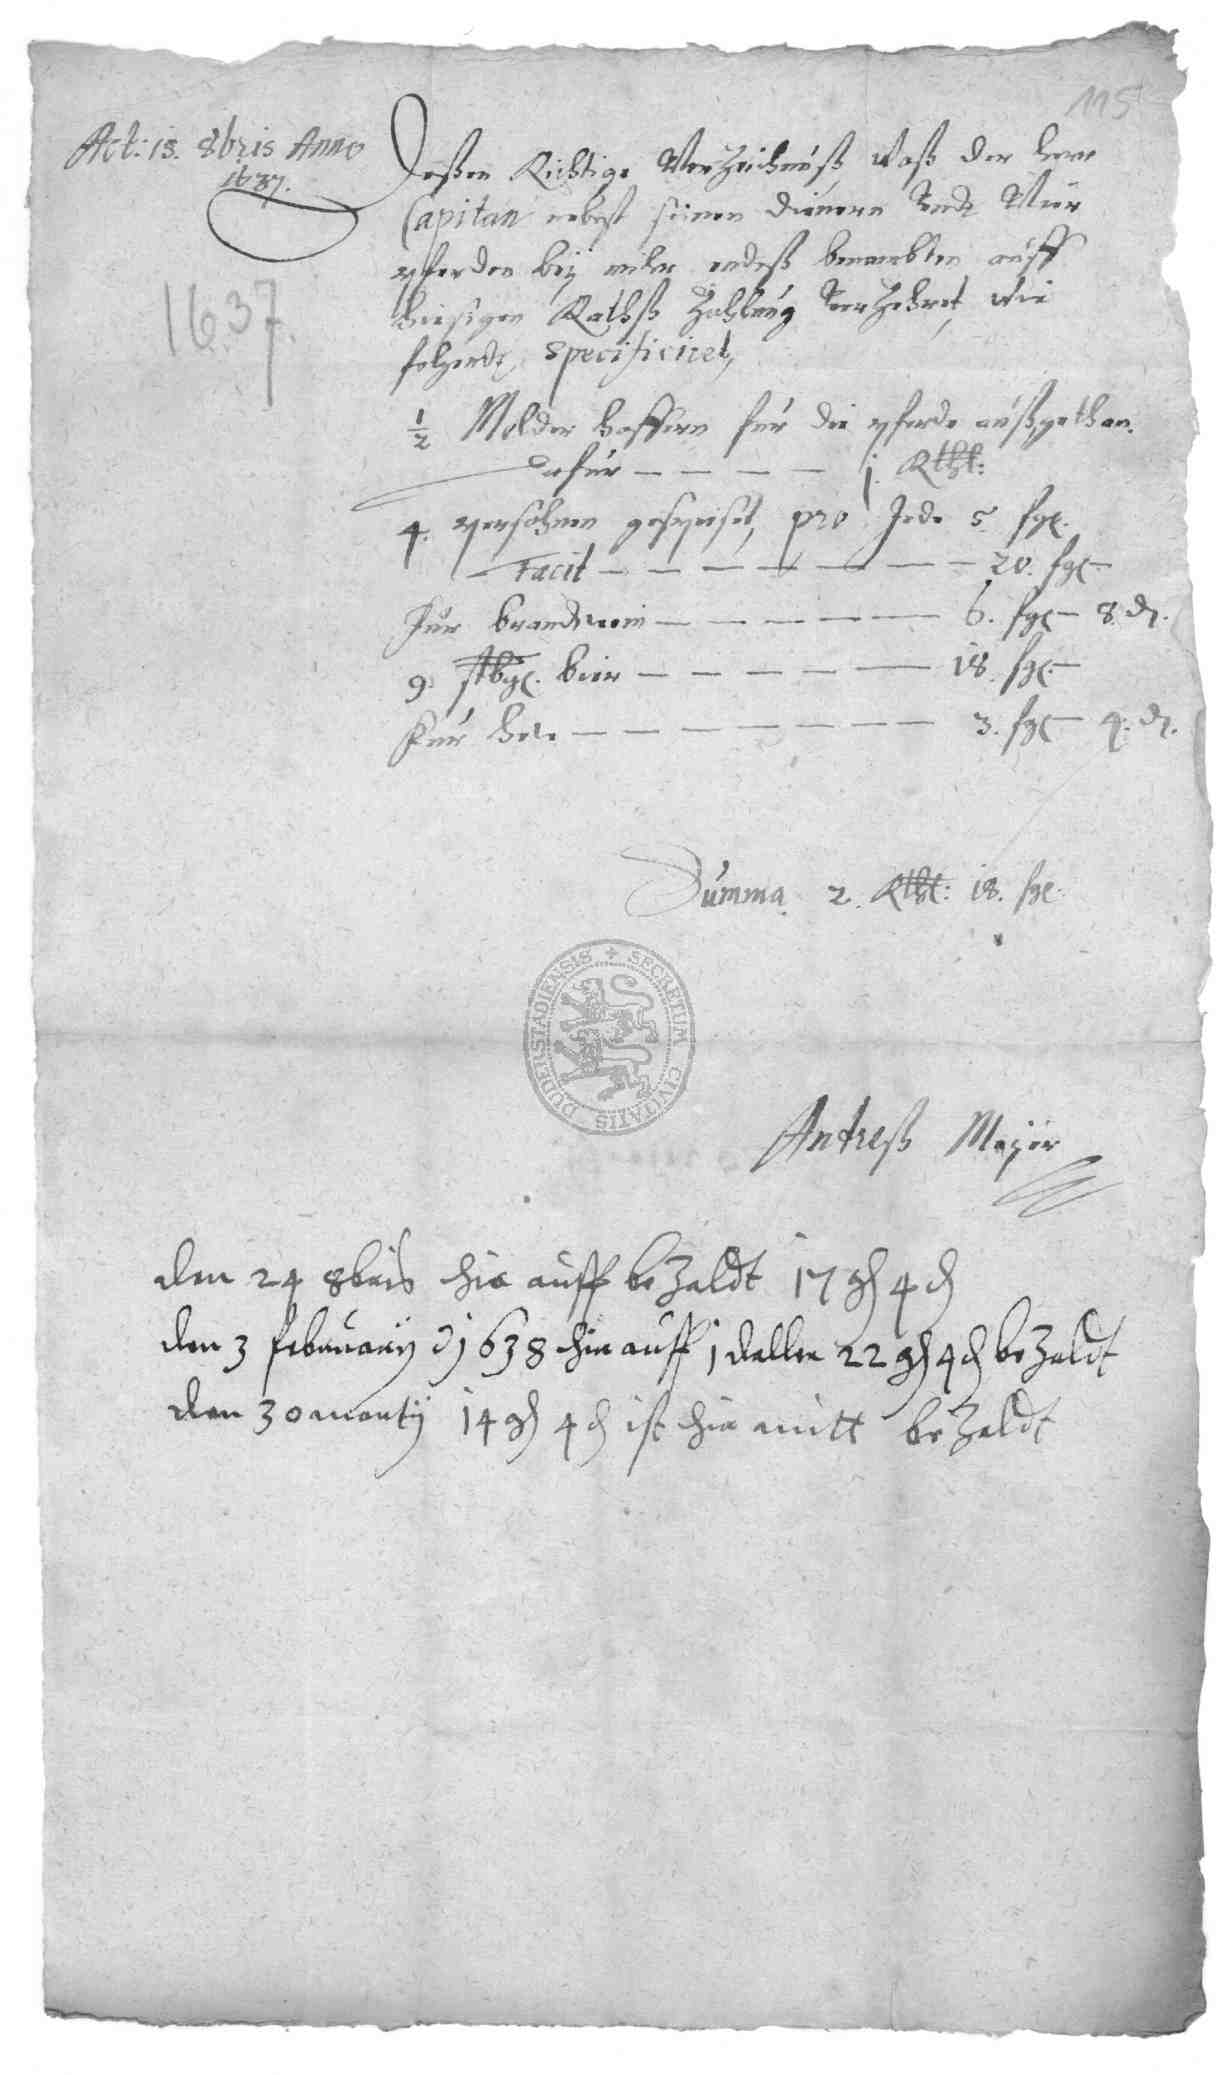 115
Act: 18. 8bris Anno
1637.
1637.
Deßen Richtige Verzeichnuß waß der herr
Capitan nebest seinen dienern undt Vier
pferden bey mihr endeß benambten auff
hiesigen Rathß Zahlung verzehret, wie
folgendt specificiret,
½ Molder haffern für die pferde außgethan.
dafür – – – – – 1. Rthl:
4. persohnen gespeiset, pro Jede 5. sgl.
Facit – – – – – – – – 20. sgl –
Für brandtwein – – – – – – 6. sgl – 8. d.
9 stbgl. bier – – – – – – 18. sgl. –
Für hew – – – – – – – – 3. sgl – 4. d.
Summa 2. Rthl: 18. sgl.
SECRETUM CIVITATIS DUDERSTADIENSIS
Andreß Meyer
den 24 8bris hir auff bezaldt 17 gl 4 d
den 3 februarij 1638 hir auff 1 daller 22 gl 4 d bezaldt
den 30 martij 14 gl 4 d ist hir mitt bezaldt